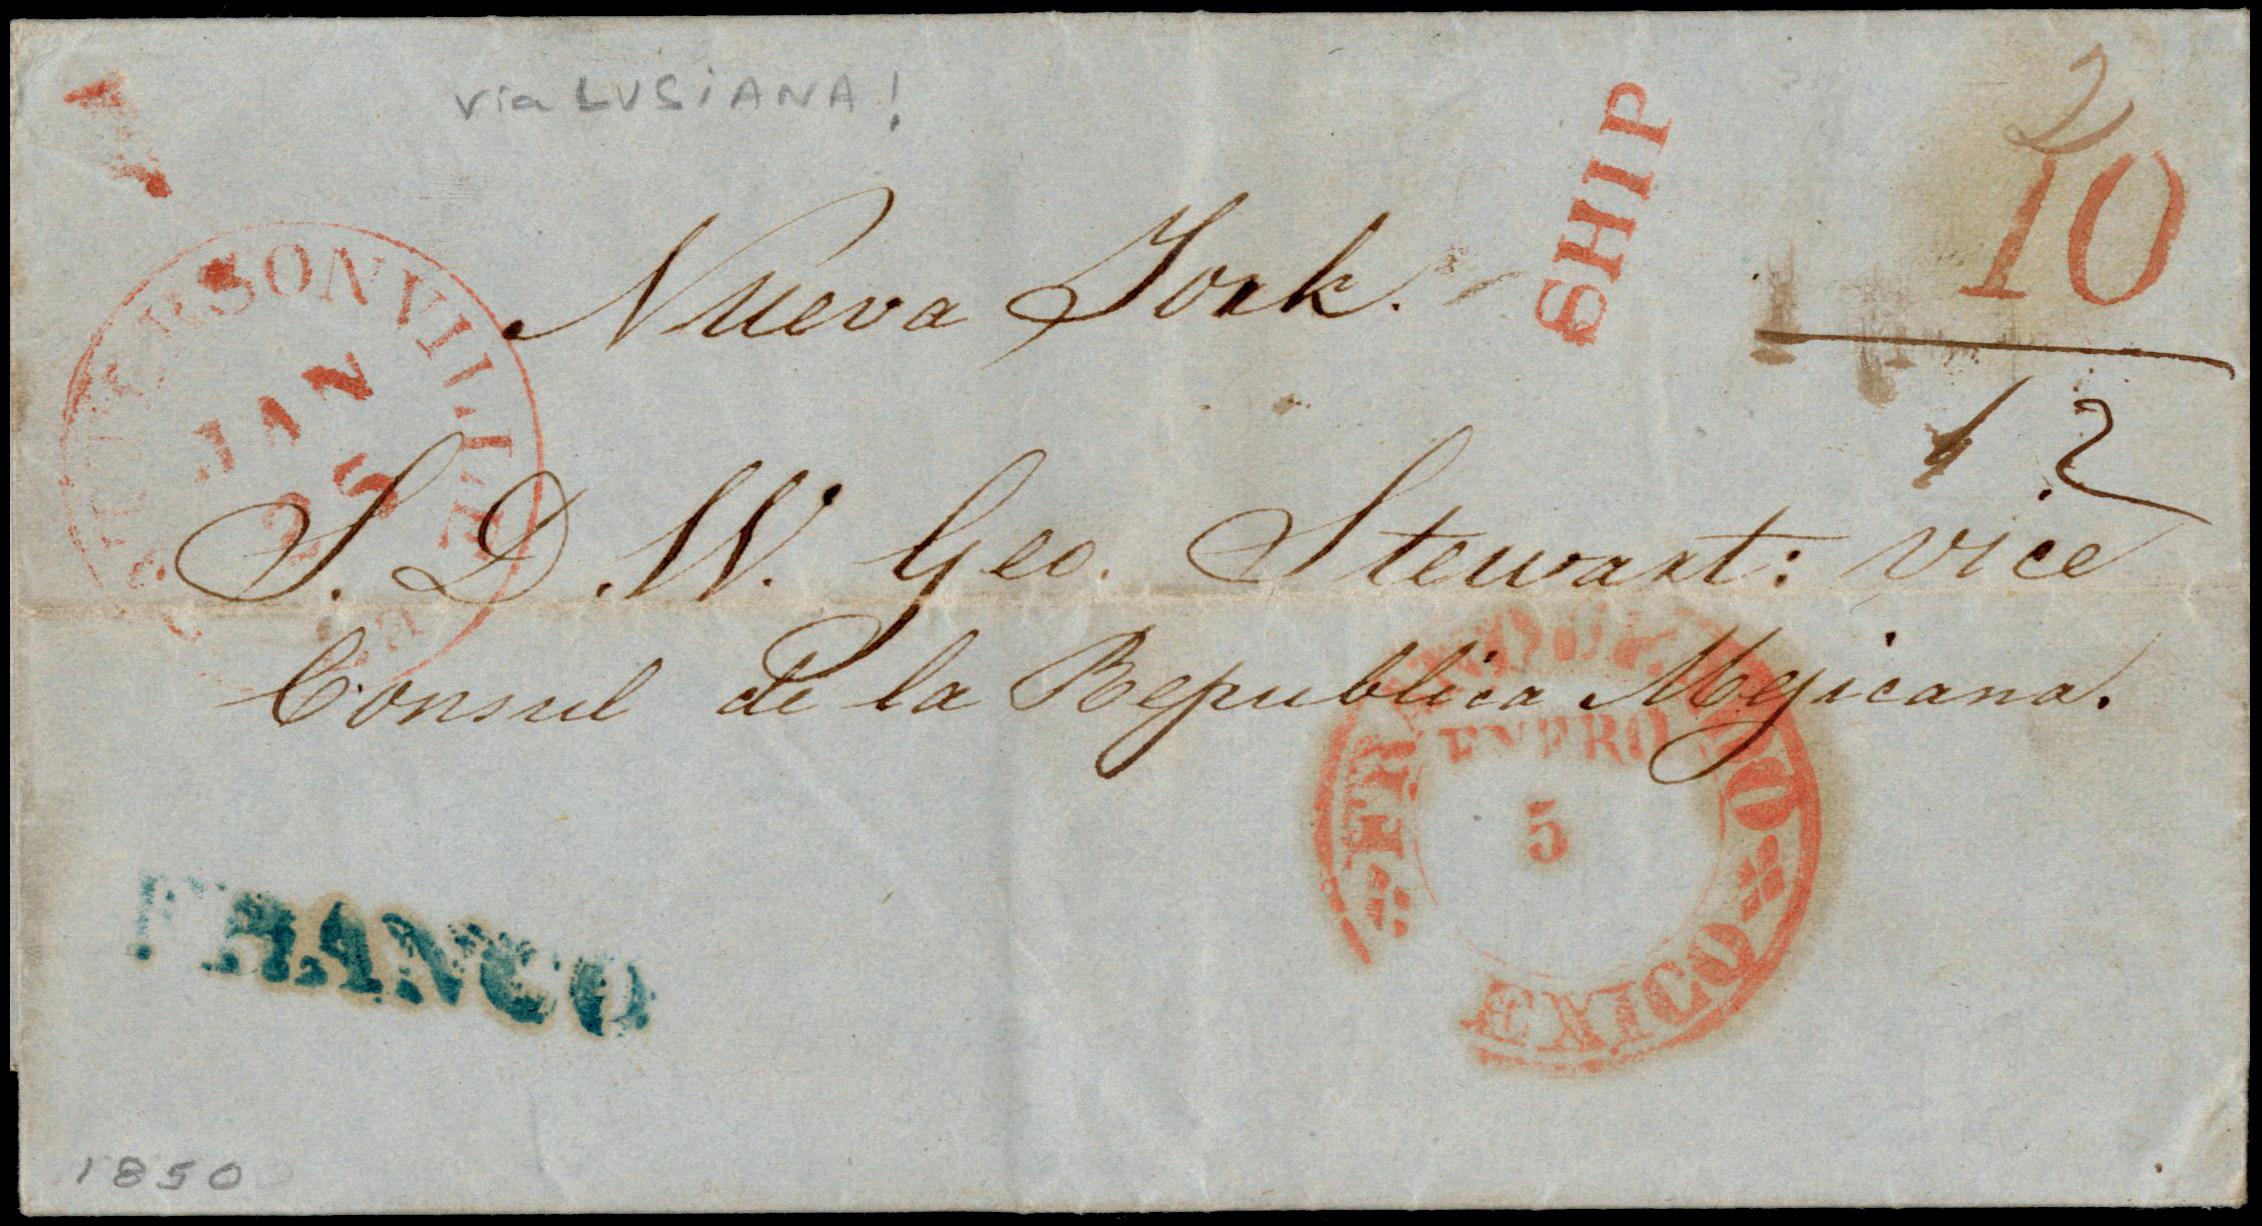 via LUSiANA!
2
SHIP
10
12
JEFFERSONVILLE
JAN
25
La
Nueva York.
S. D. W. Geo. Stewart: Vice
Consul de la Republica Mejicana.
FRANQUEADO
ENERO
5
MEXICO
FRANCO
1850